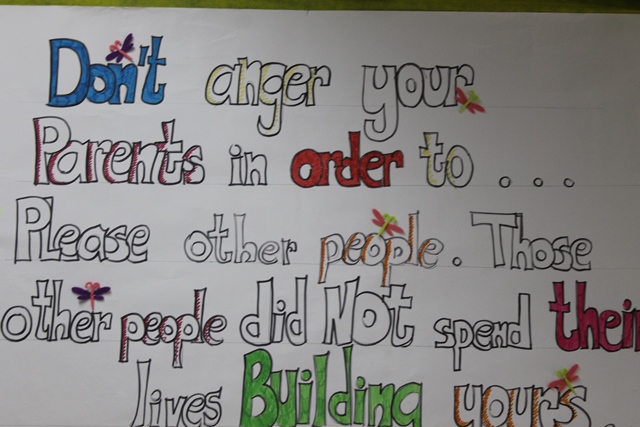 Don't anger your
Parents in order to ...
Please other people. Those
other people did NOt spend their
lives Building yours.